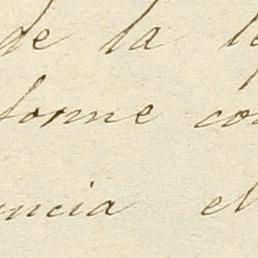 de la le
forme co
uncia el